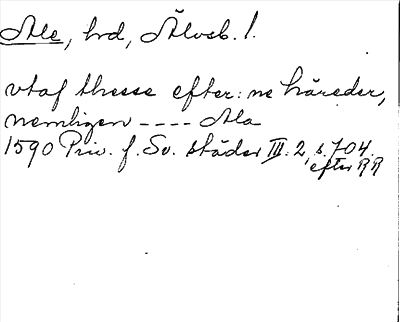 Ale, hrd, Älvsb. l.
utaf thesse efter:ne häreder,
nemligen ---- Ala
1590 Priv. f. Sv. städer III:2, s. 704.
efter RR